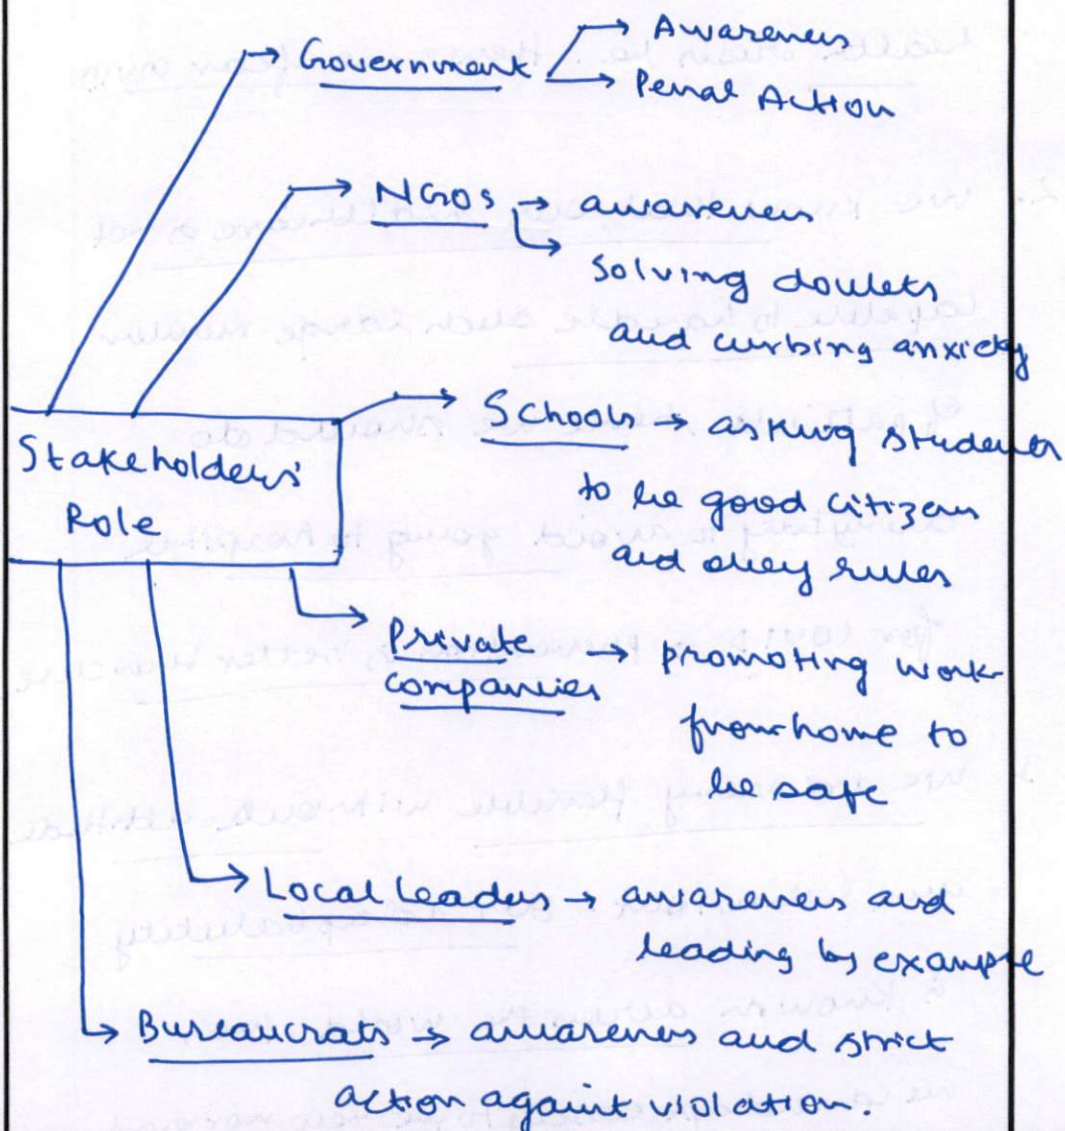 Government → Awareness
→ Penal Action
NGOs → awareness
solving doubts
and curbing anxiety
Stakeholders'
Role
Schools → asking students
to be good citizen
and obey rules
Private → promoting work
companies
from home to
be safe
Local leaders → awareness and
leading by example
Bureaucrats → awareness and strict
action againt violation.